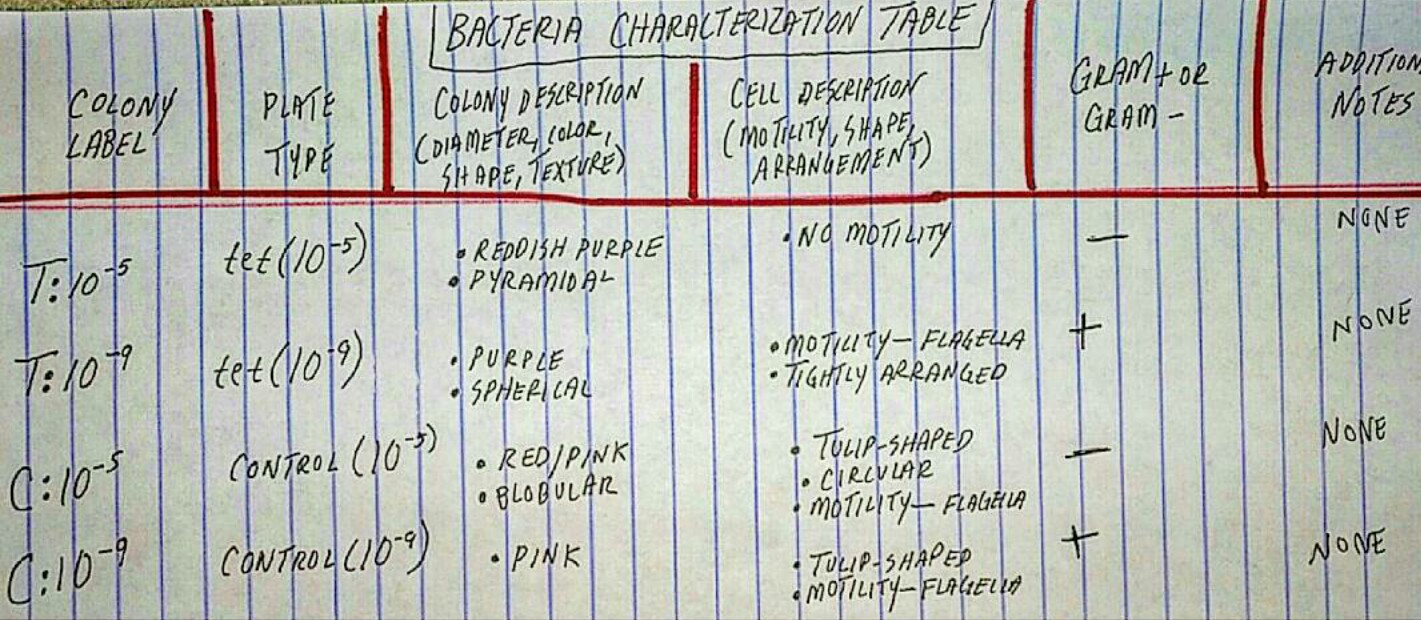 BACTERIA CHARACTERIZATION TABLE
COLONY
LABEL
PLATE
TYPE
COLONY DESCRIPTION
(DIAMETER, COLOR,
SHAPE, TEXTURE)
CELL DESCRIPTION
(MOTILITY, SHAPE,
ARRANGEMENT)
GRAM + OR
GRAM -
ADDITION
NOTES
T:10⁻⁵
tet(10⁻⁵)
• REDDISH PURPLE
• PYRAMIDAL
• NO MOTILITY
—
NONE
T:10⁻⁹
tet(10⁻⁹)
• PURPLE
• SPHERICAL
• MOTILITY— FLAGELLA
• TIGHTLY ARRANGED
+
NONE
C:10⁻⁵
CONTROL (10⁻⁵)
• RED/PINK
• BLOBULAR
• TULIP-SHAPED
• CIRCULAR
• MOTILITY— FLAGELLA
—
NONE
C:10⁻⁹
CONTROL (10⁻⁹)
• PINK
• TULIP-SHAPED
• MOTILITY—FLAGELLA
+
NONE